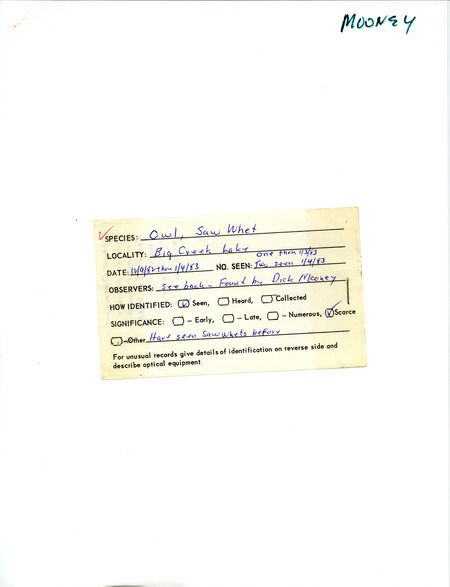 MOONEY
SPECIES: Owl, Saw Whet
LOCALITY: Big Creek Lake
one thru 1/3/83
DATE: 12/9/82 thru 1/4/83 NO. SEEN: Two seen 1/4/83
OBSERVERS: See back - Found by Dick Mooney
HOW IDENTIFIED: Seen, Heard, Collected
SIGNIFICANCE: - Early, - Late, - Numerous, Scarce
-Other Have seen Saw Whets before
For unusual records give details of identification on reverse side and
describe optical equipment.